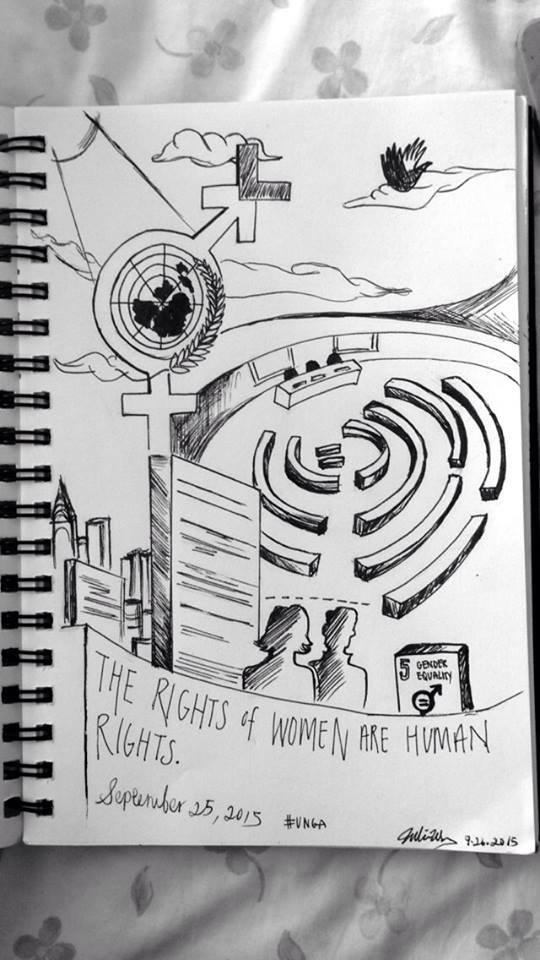 5 GENDER
EQUALITY
THE RIGHTS of WOMEN ARE HUMAN
RIGHTS.
September 25, 2015
#UNGA
9.26.2015